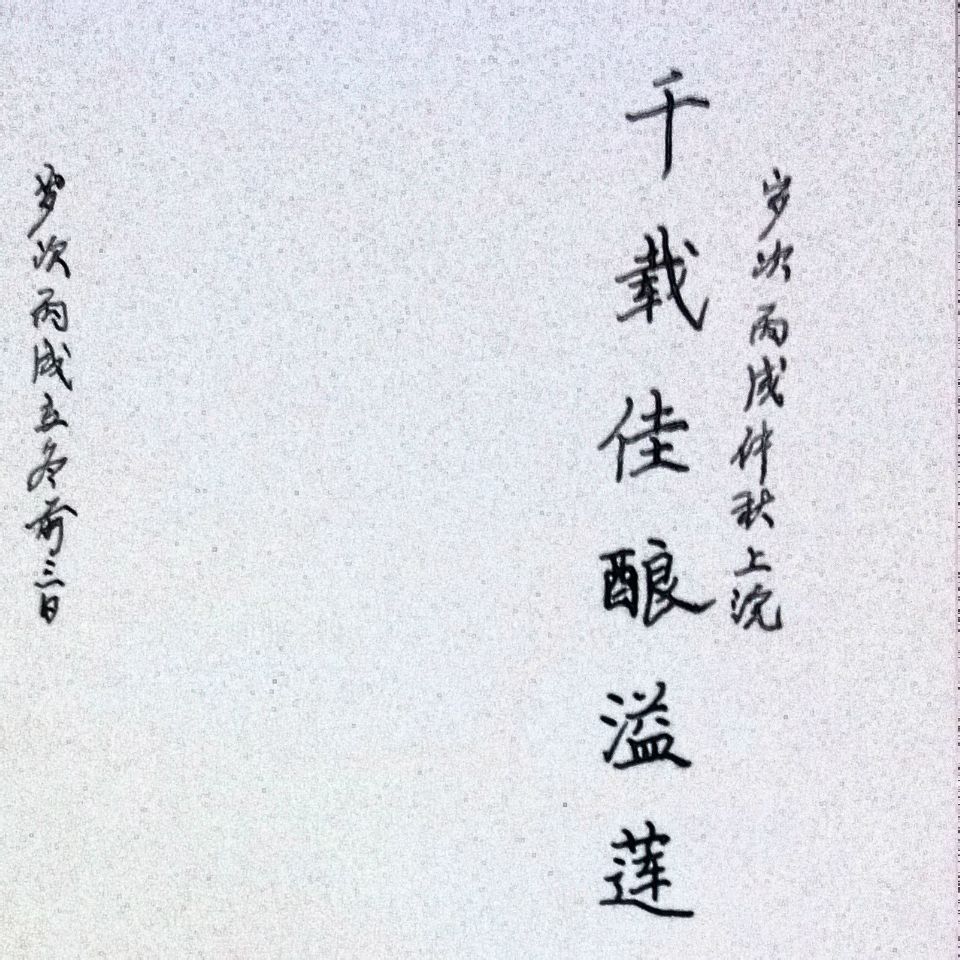 岁次丙戌仲秋上浣
千载佳酿溢莲
岁次丙戌立冬前三日